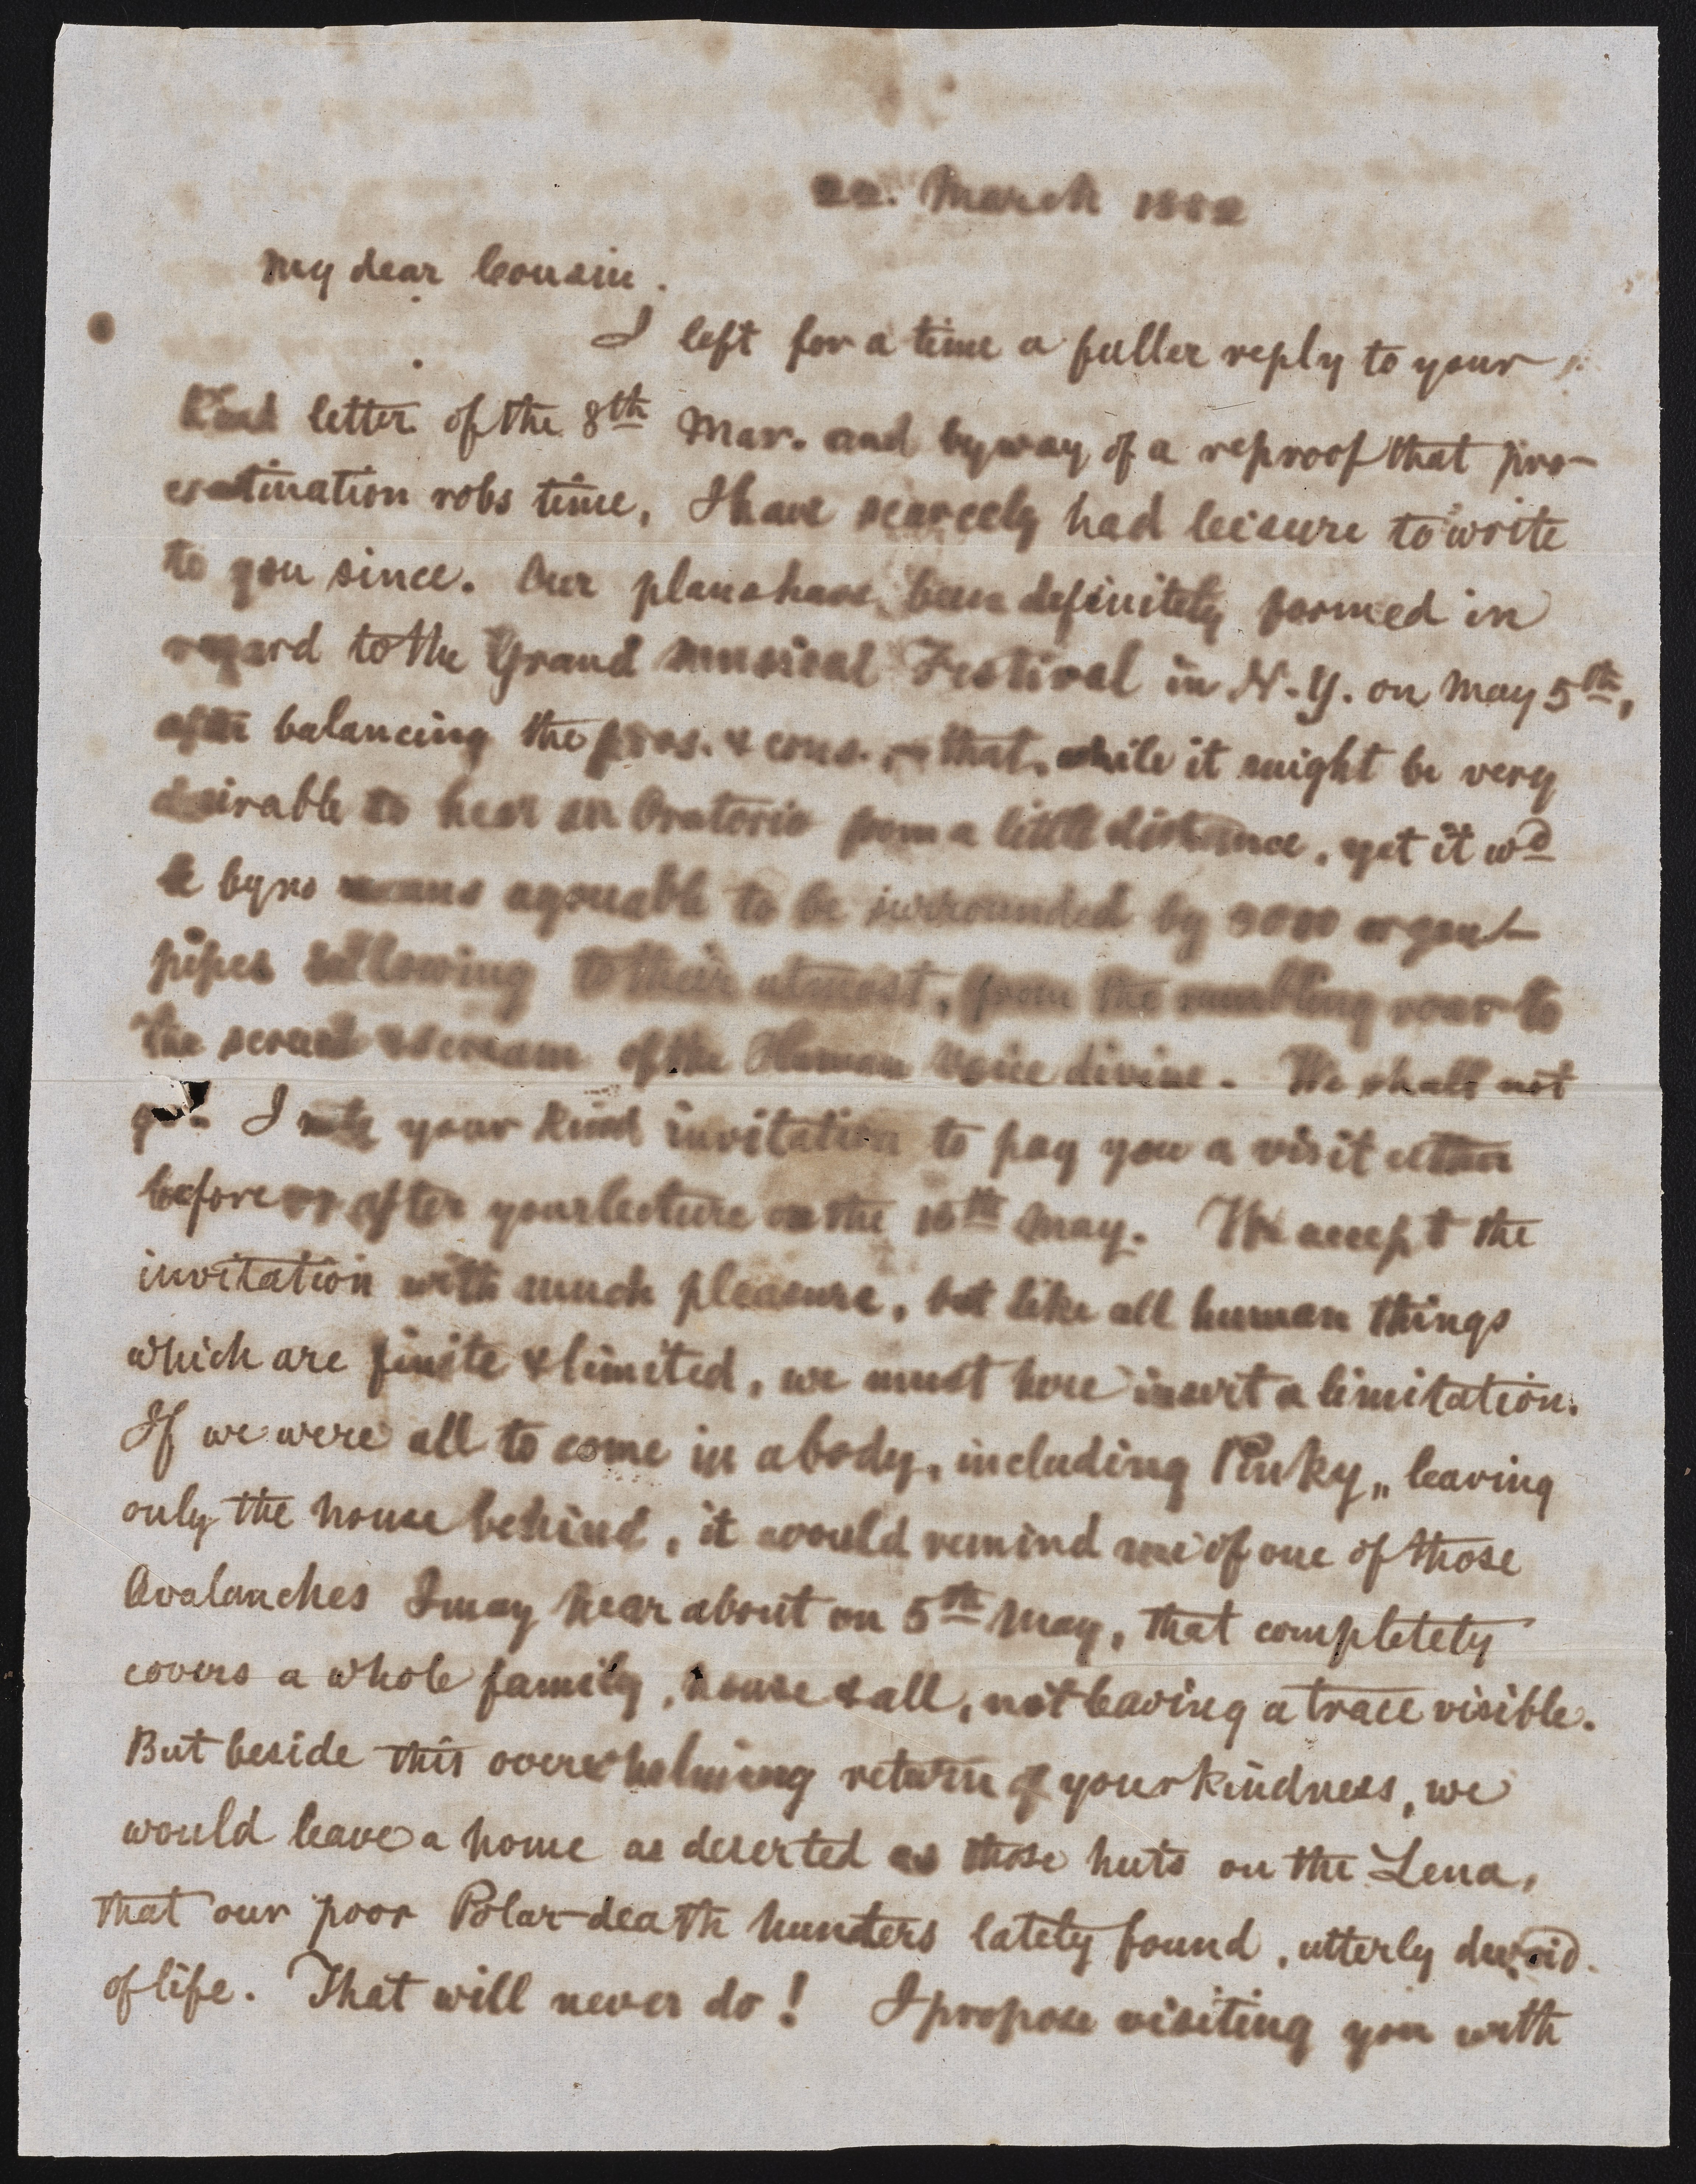 22. March 1882
My dear Cousin.
I left for a time a fuller reply to your
kind letter of the 8th Mar. and by way of a reproof that pro-
cratination robs time, I have scarcely had leisure to write
to you since. Our plans have been definitely formed in
regard to the Grand musical Festival in N.Y. on May 5th,
after balancing the pros. & cons. that, while it might be very
desirable to hear an Oratorio from a little distance, yet it wd
be by no means agreeable to be surrounded by 3000 organ-
pipes bellowing to their utmost, from the rumbling roar to
the scream of the Human Voice divine. We shall not
go. I note your kind invitation to pay you a visit either
before or after your lecture on the 16th May. We accept the
invitation with much pleasure, but like all human things
which are finite & limited, we must here insert a limitation.
If we were all to come in a body, including Pinky,, leaving
only the house behind, it would remind me of one of those
Avalanches I may hear about on 5th May, that completely
covers a whole family, house & all, not leaving a trace visible.
But beside this overwhelming return of your kindness, we
would leave a home as deserted as those huts on the Lena,
that our poor Polar-death hunters lately found, utterly devoid
of life. That will never do! I propose visiting you with